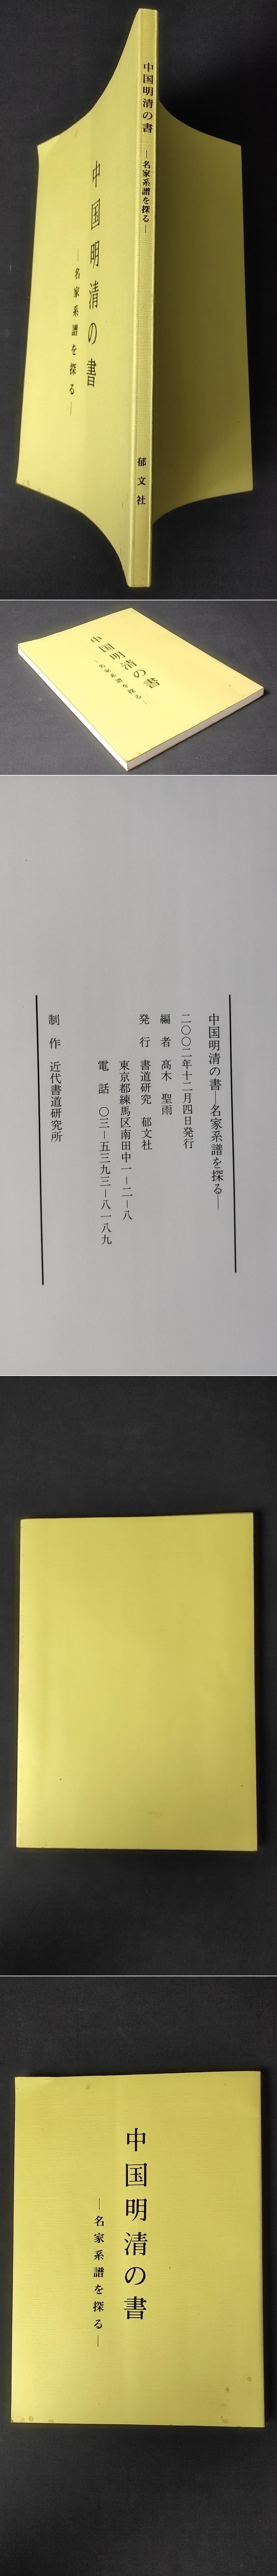 中国明清の書
―名家系譜を探る―
郁文社
中国明清の書
―名家系譜を探る―
中国明清の書
―名家系譜を探る―
中国明清の書―名家系譜を探る―
二〇〇二年十二月四日発行
編者 髙木聖雨
発行 書道研究 郁文社
東京都練馬区南田中一―二―八
電話 〇三―五三九三―八一八九
制作 近代書道研究所
中国明清の書
―名家系譜を探る―